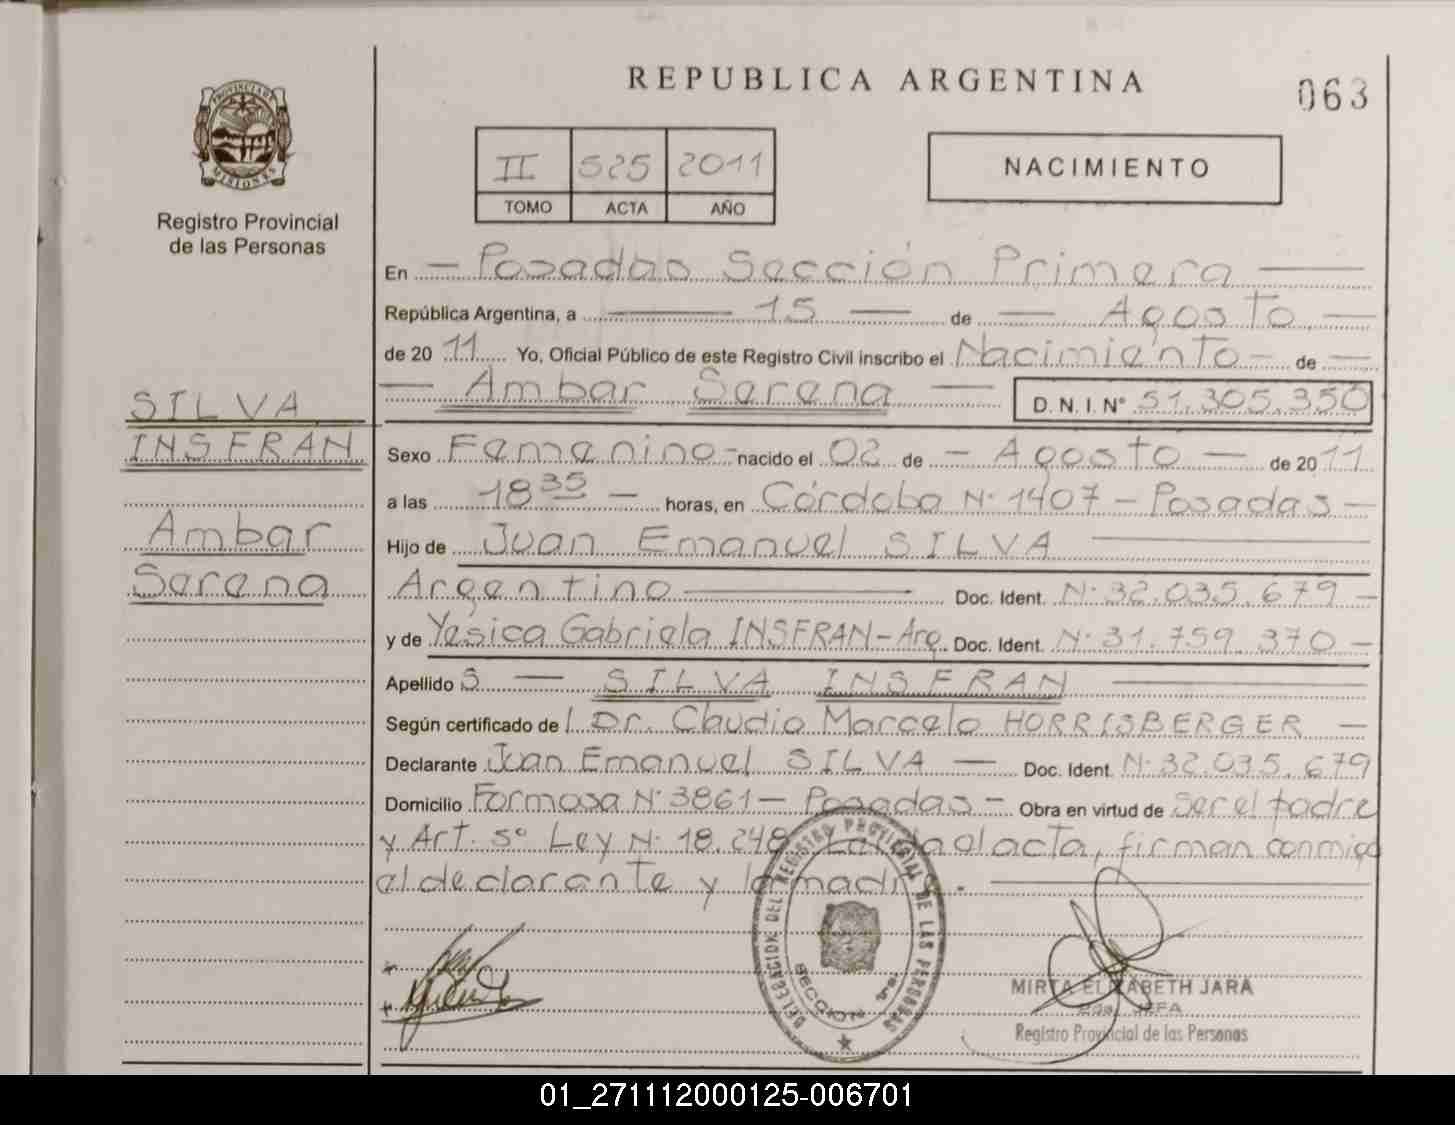 REPUBLICA ARGENTINA
063
PROVINCIA DE MISIONES
Registro Provincial
de las Personas
II 525 2011
TOMO ACTA AÑO
NACIMIENTO
En — Posadas Sección Primera —
República Argentina, a — 15 — de — Agosto —
de 2011 Yo, Oficial Público de este Registro Civil inscribo el Nacimiento — de —
— Ambar Serena — D.N.I. Nº 51.305.350
SILVA
INSFRAN
Ambar
Serena
Sexo Femenino - nacido el 02 de — Agosto — de 2011
a las 18 35 — horas, en Córdoba Nº 1407 — Posadas —
Hijo de Juan Emanuel SILVA —
Argentino — Doc. Ident. Nº 32.035.679 —
y de Yesica Gabriela INSFRAN - Arg. Doc. Ident. Nº 31.759.370 —
Apellido S — SILVA INSFRAN —
Según certificado de l Dr. Claudio Marcelo HORRISBERGER —
Declarante Juan Emanuel SILVA — Doc. Ident. Nº 32.035.679
Domicilio Formosa Nº 3861 — Posadas — Obra en virtud de ser el padre
y Art. 5º Ley Nº 18.248. acta, firman conmigo
el declarante y la madre. —
DELEGACION DEL REGISTRO PROVINCIAL DE LAS PERSONAS
SECCION 1ra.
MIRTA ELIZABETH JARA
JEFA
Registro Provincial de las Personas
01_271112000125-006701